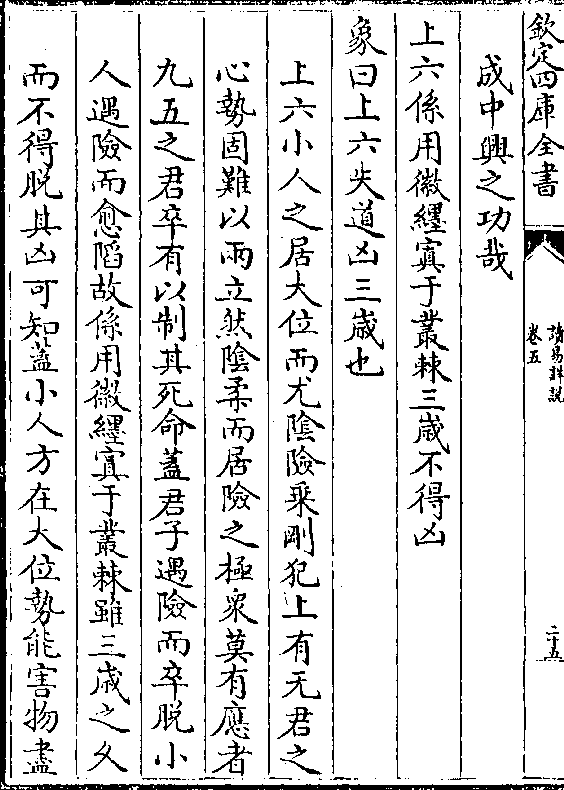 欽定四庫全書
讀易詳說
卷五
二十五
成中興之功哉
上六係用徽纆寘于叢棘三歲不得凶
象曰上六失道凶三歲也
上六小人之居大位而尤陰險乗剛犯上有无君之
心勢固難以兩立然陰柔而居險之極衆莫有應者
九五之君卒有以制其死命蓋君子遇險而卒脫小
人遇險而愈陷故係用徽纆寘于叢棘雖三歲之久
而不得脫其凶可知蓋小人方在大位勢能害物盡